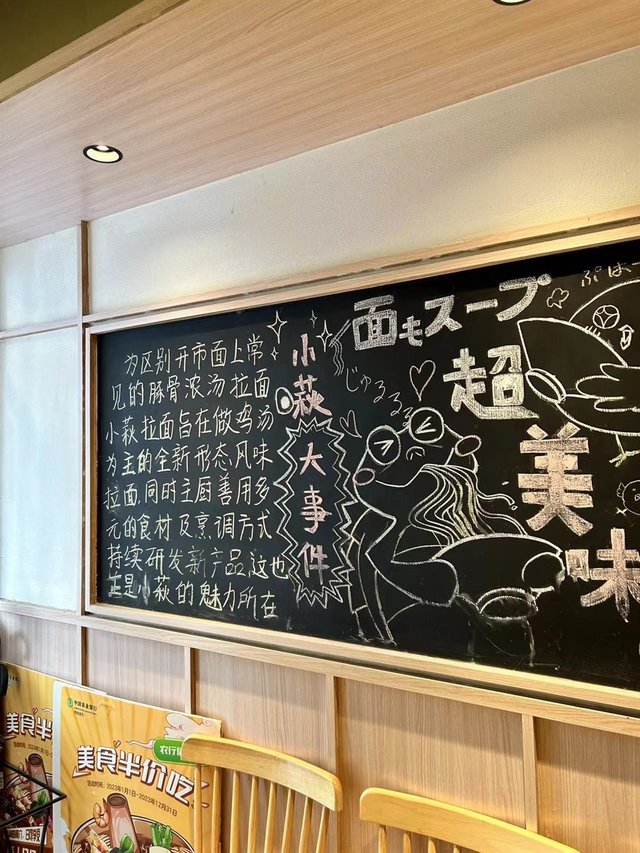 为区别开市面上常
见的豚骨浓汤拉面
小萩拉面旨在做鸡汤
为主的全新形态风味
拉面.同时主厨善用多
元的食材及烹调方式
持续研发新产品这也
正是小萩的魅力所在
小萩
大事件
面もスープ
超
美味
じゅるる
ぷはー
中国农业银行
美食半价吃
农行
活动时间：2023年1月1日-2023年12月31日
美食半